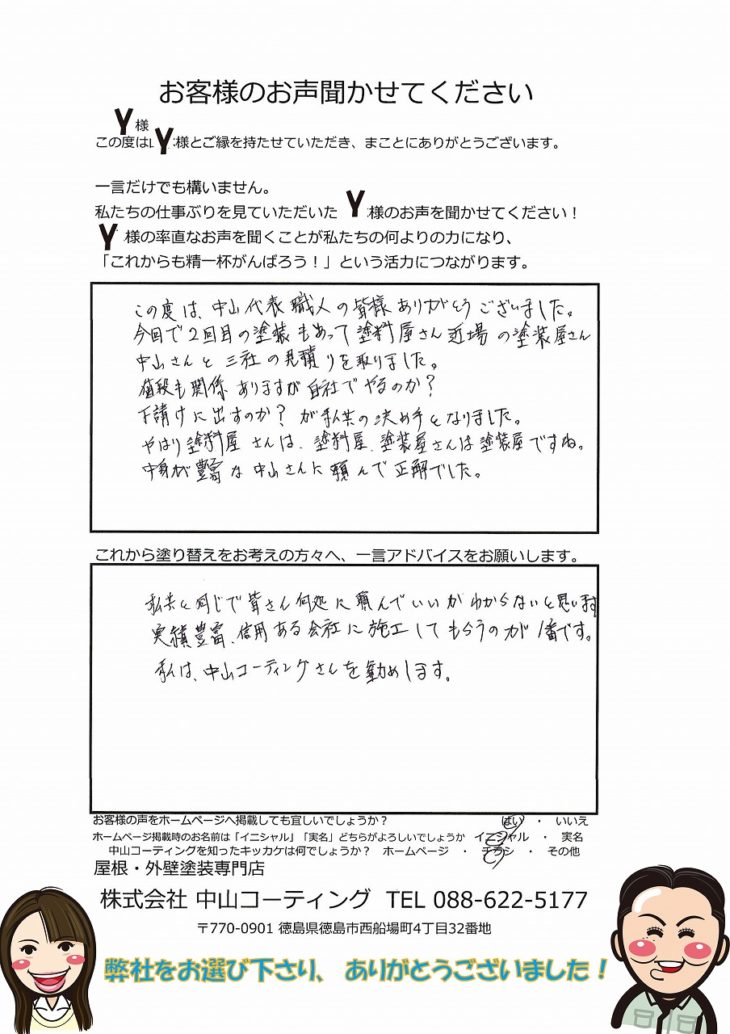 お客様のお声聞かせてください
Y様
この度は Y様とご縁を持たせていただき、まことにありがとうございます。
一言だけでも構いません。
私たちの仕事ぶりを見ていただいた Y様のお声を聞かせてください！
Y様の率直なお声を聞くことが私たちの何よりの力になり、
「これからも精一杯がんばろう！」という活力につながります。
この度は、中山代表職人の皆様ありがとうございました。
今回で2回目の塗装もあって塗料屋さん近場の塗装屋さん
中山さんと三社の見積りを取りました。
値段も関係ありますが自社でやるのか？
下請けに出すのか？が私共の決め手となりました。
やはり塗料屋さんは、塗料屋、塗装屋さんは塗装屋ですね。
中身が豊富な中山さんに頼んで正解でした。
これから塗り替えをお考えの方々へ、一言アドバイスをお願いします。
私共と同じで皆さん何処に頼んでいいかわからないと思います
実績豊富、信用ある会社に施工してもらうのが1番です。
私は、中山コーティングさんを勧めします。
お客様の声をホームページへ掲載しても宜しいでしょうか？ はい ・ いいえ
ホームページ掲載時のお名前は「イニシャル」「実名」どちらがよろしいでしょうか イニシャル ・ 実名
中山コーティングを知ったキッカケは何でしょうか？ ホームページ ・ チラシ ・ その他
屋根・外壁塗装専門店
株式会社 中山コーティング TEL 088-622-5177
〒770-0901 徳島県徳島市西船場町4丁目32番地
弊社をお選び下さり、ありがとうございました！